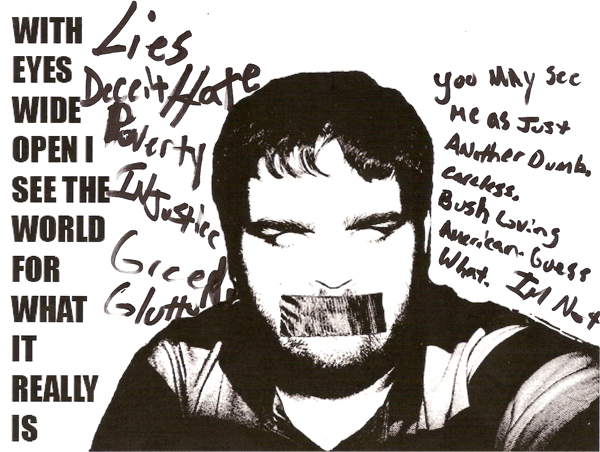 WITH
EYES
WIDE
OPEN I
SEE THE
WORLD
FOR
WHAT
IT
REALLY
IS
Lies
Deceit Hate
Poverty
INJustice
Greed
you may see
me as Just
Another Dumb.
careless.
Bush Loving
American. Guess
What. Im Not